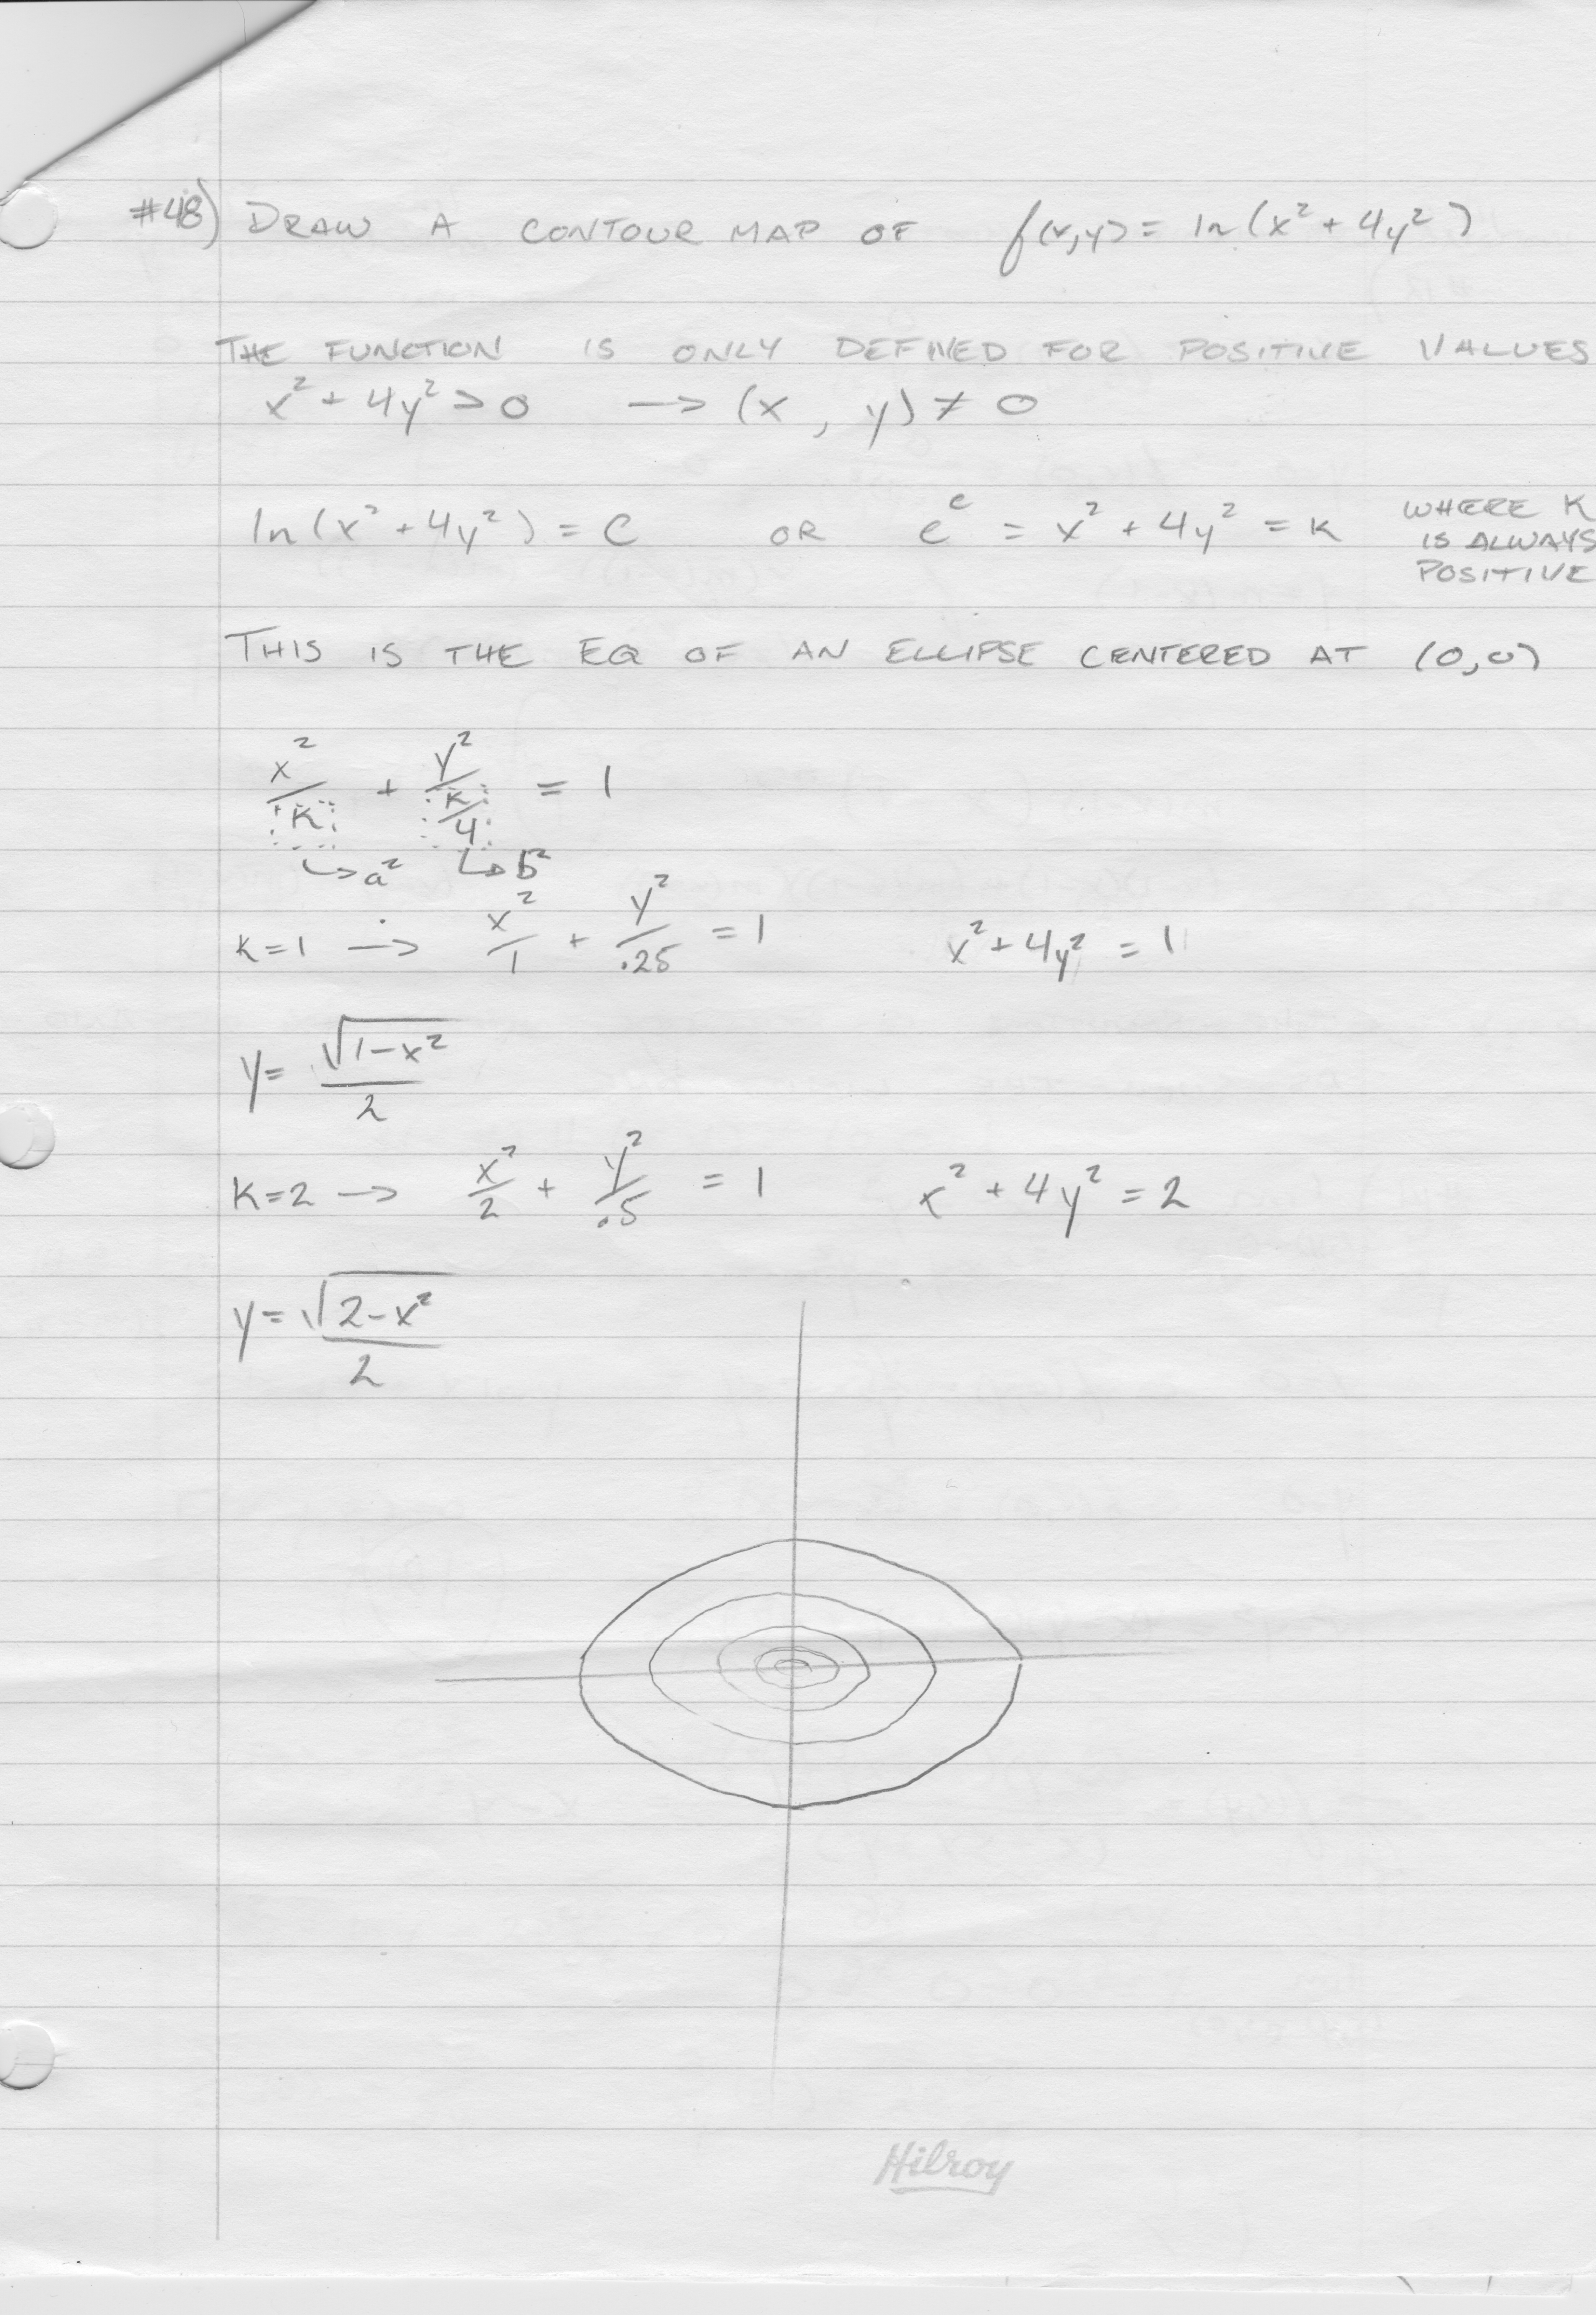 #48) DRAW A CONTOUR MAP OF f(x,y) = ln(x² + 4y²)
THE FUNCTION IS ONLY DEFINED FOR POSITIVE VALUES
x² + 4y² > 0 → (x, y) ≠ 0
ln(x² + 4y²) = C OR e^c = x² + 4y² = K WHERE K
IS ALWAYS
POSITIVE
THIS IS THE EQ OF AN ELLIPSE CENTERED AT (0,0)
x²/K + y²/(K/4) = 1
↳ a² ↳ b²
K=1 → x²/1 + y²/.25 = 1 x² + 4y² = 1
y = √(1-x²)/2
K=2 → x²/2 + y²/.5 = 1 x² + 4y² = 2
y = √(2-x²)/2
Hilroy